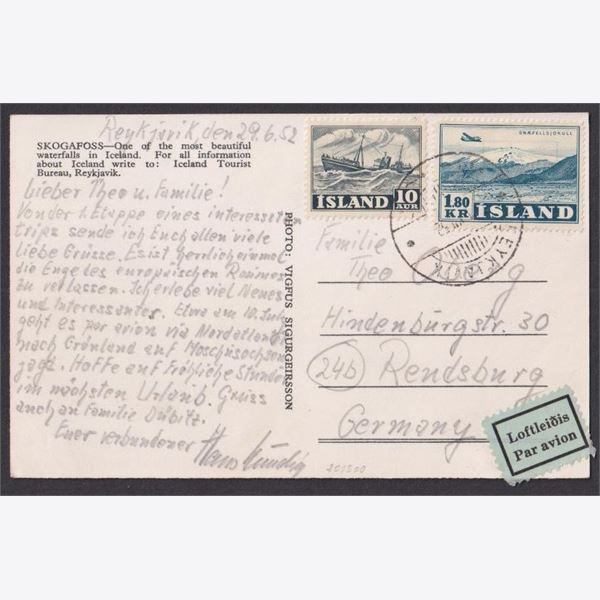 Reykjavik, den 29.6.52
SKOGAFOSS—One of the most beautiful
waterfalls in Iceland. For all information
about Iceland write to: Iceland Tourist
Bureau, Reykjavik.
Lieber Theo u. Familie!
Von der 1. Etappe eines interessanten
trips sende ich Euch allen viele
liebe Grüsse. Es ist herrlich einmal
die Enge des europäischen Raumes
zu verlassen. Ich erlebe viel Neues
und Interessantes. Etwa am 10. Juli
geht es par avion via Nordatlantik
nach Grönland auf Moschusochsen
jagd. Hoffe auf fröhliche Stunden
im nächsten Urlaub. Gruss
auch an Familie
Euer verbundener Hans
PHOTO: VIGFUS SIGURGEIRSSON
10
AUR
ÍSLAND
SNÆFELLSJÖKULL
1.80
KR
ÍSLAND
REYKJAVIK
Familie
Theo
Hindenburgstr. 30
24b Rendsburg
Germany
Loftleiðis
Par avion